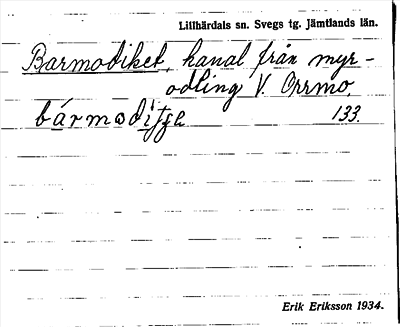 Lillhärdals sn. Svegs tg. jämtlands län.
Barmodiket, kanal från myr-
odling V. Orrmo,
133.
Erik Eriksson 1934.